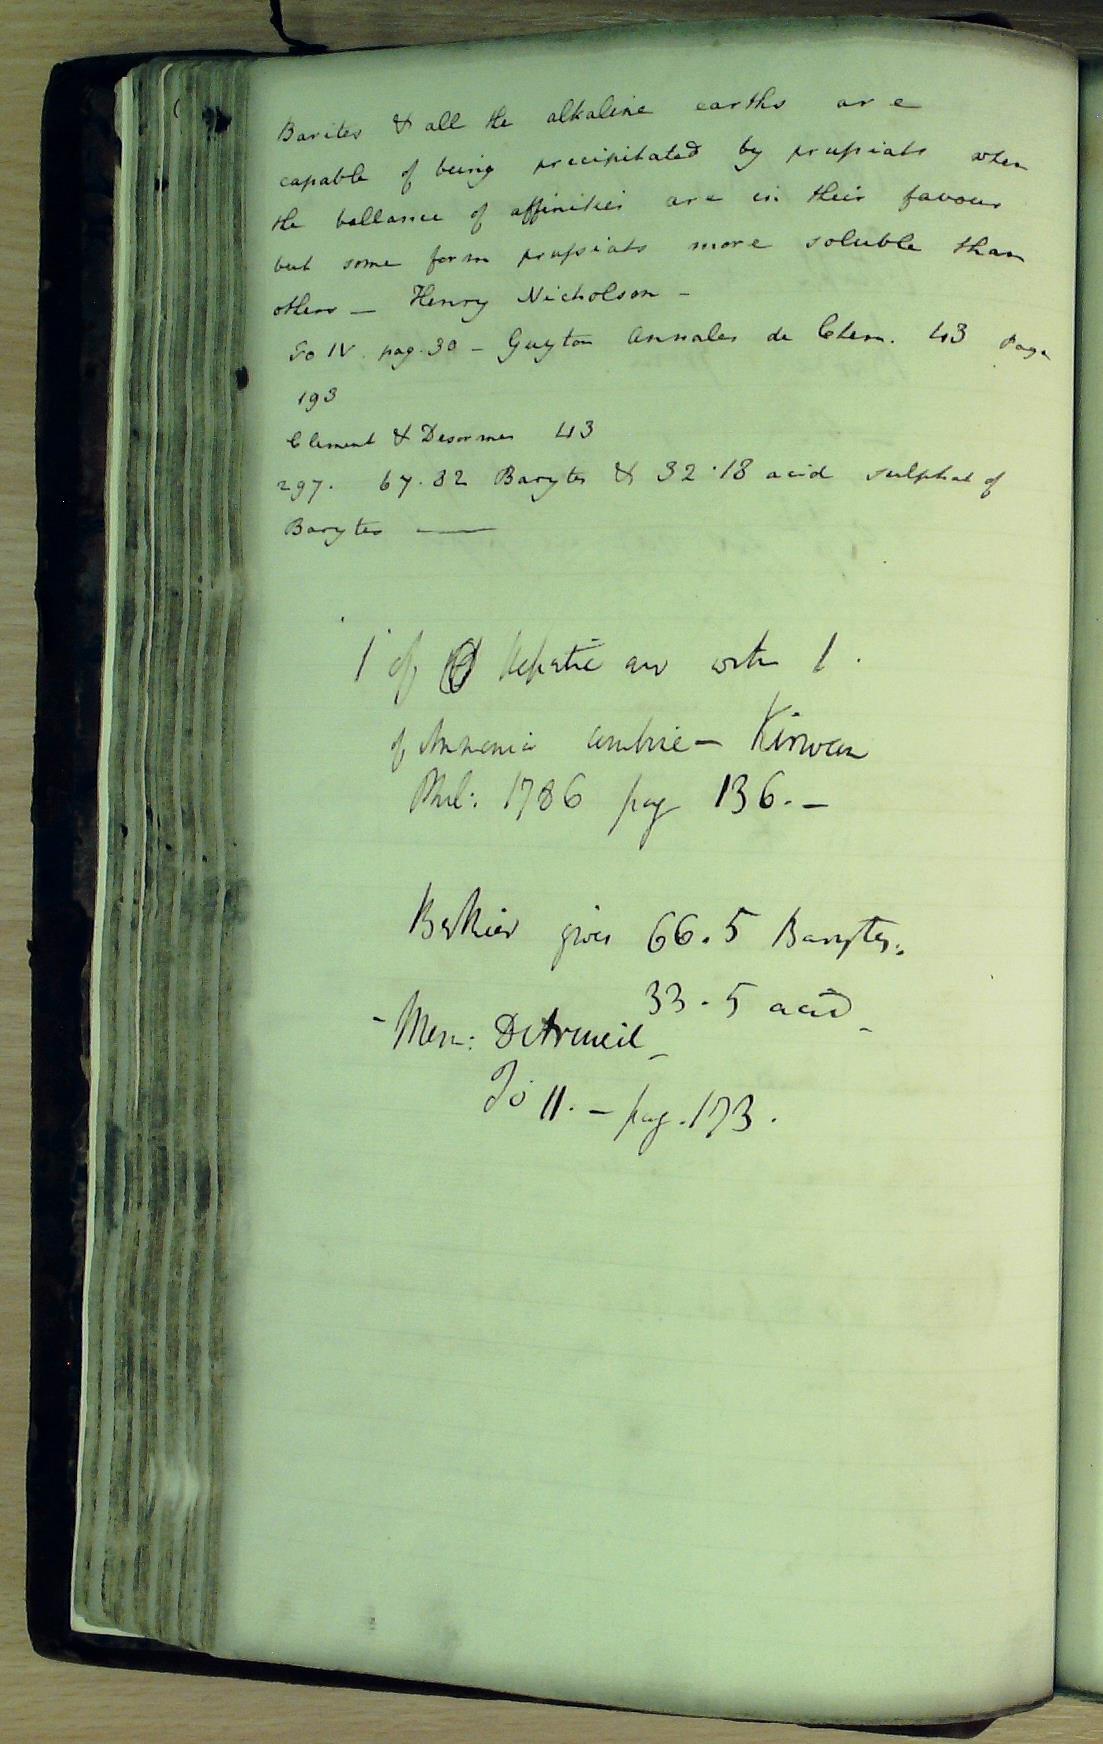 Barites & all the alkaline earths are
capable of being precipitated by prussiats when
the ballance of affinities are in their favour
but some form prussiats more soluble than
others — Henry Nicholson -
To IV. pag. 30 - Guyton Annales de Chem. 43 page
193
Clement & Desormes 43
297. 67.82 Barytes & 32.18 acid sulphat of
Barytes —
1 of Hepatic air with 1.
of Ammonia combine - Kirwan
Phil: 1786 pag 136. -
Berthier gives 66.5 Barytes.
33.5 acid -
- Mem: D'Arcueil -
To 11. - pag. 173.